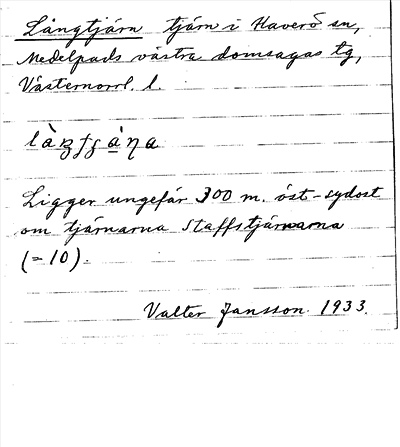 Långtjärn tjärn i Haverö sn,
Medelpads västra domsagas tg,
Västernorrl. l.
Ligger ungefär 300 m. öst-sydost
om tjärnarna Staffstjärnarna
(=10).
Valter Jansson 1933.